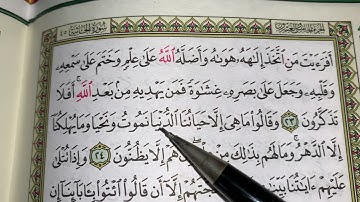 سُورَةُ الْجَاثِيَةِ ٤٥
أَفَرَءَيْتَ مَنِ ٱتَّخَذَ إِلَٰهَهُۥ هَوَىٰهُ وَأَضَلَّهُ ٱللَّهُ عَلَىٰ عِلْمٍ وَخَتَمَ عَلَىٰ سَمْعِهِۦ
وَقَلْبِهِۦ وَجَعَلَ عَلَىٰ بَصَرِهِۦ غِشَٰوَةً فَمَن يَهْدِيهِ مِنۢ بَعْدِ ٱللَّهِ ۚ أَفَلَا
تَذَكَّرُونَ ٢٣ وَقَالُوا۟ مَا هِىَ إِلَّا حَيَاتُنَا ٱلدُّنْيَا نَمُوتُ وَنَحْيَا وَمَا يُهْلِكُنَآ
إِلَّا ٱلدَّهْرُ ۚ وَمَا لَهُم بِذَٰلِكَ مِنْ هُمْ إِلَّا يَظُنُّونَ ٢٤ وَإِذَا تُتْلَىٰ
عَلَيْهِمْ ءَايَٰتُنَا بَيِّ حُجَّتَهُمْ إِلَّآ أَن قَالُوا۟ ٱئْتُوا۟ بِـَٔابَآئِنَآ إِن